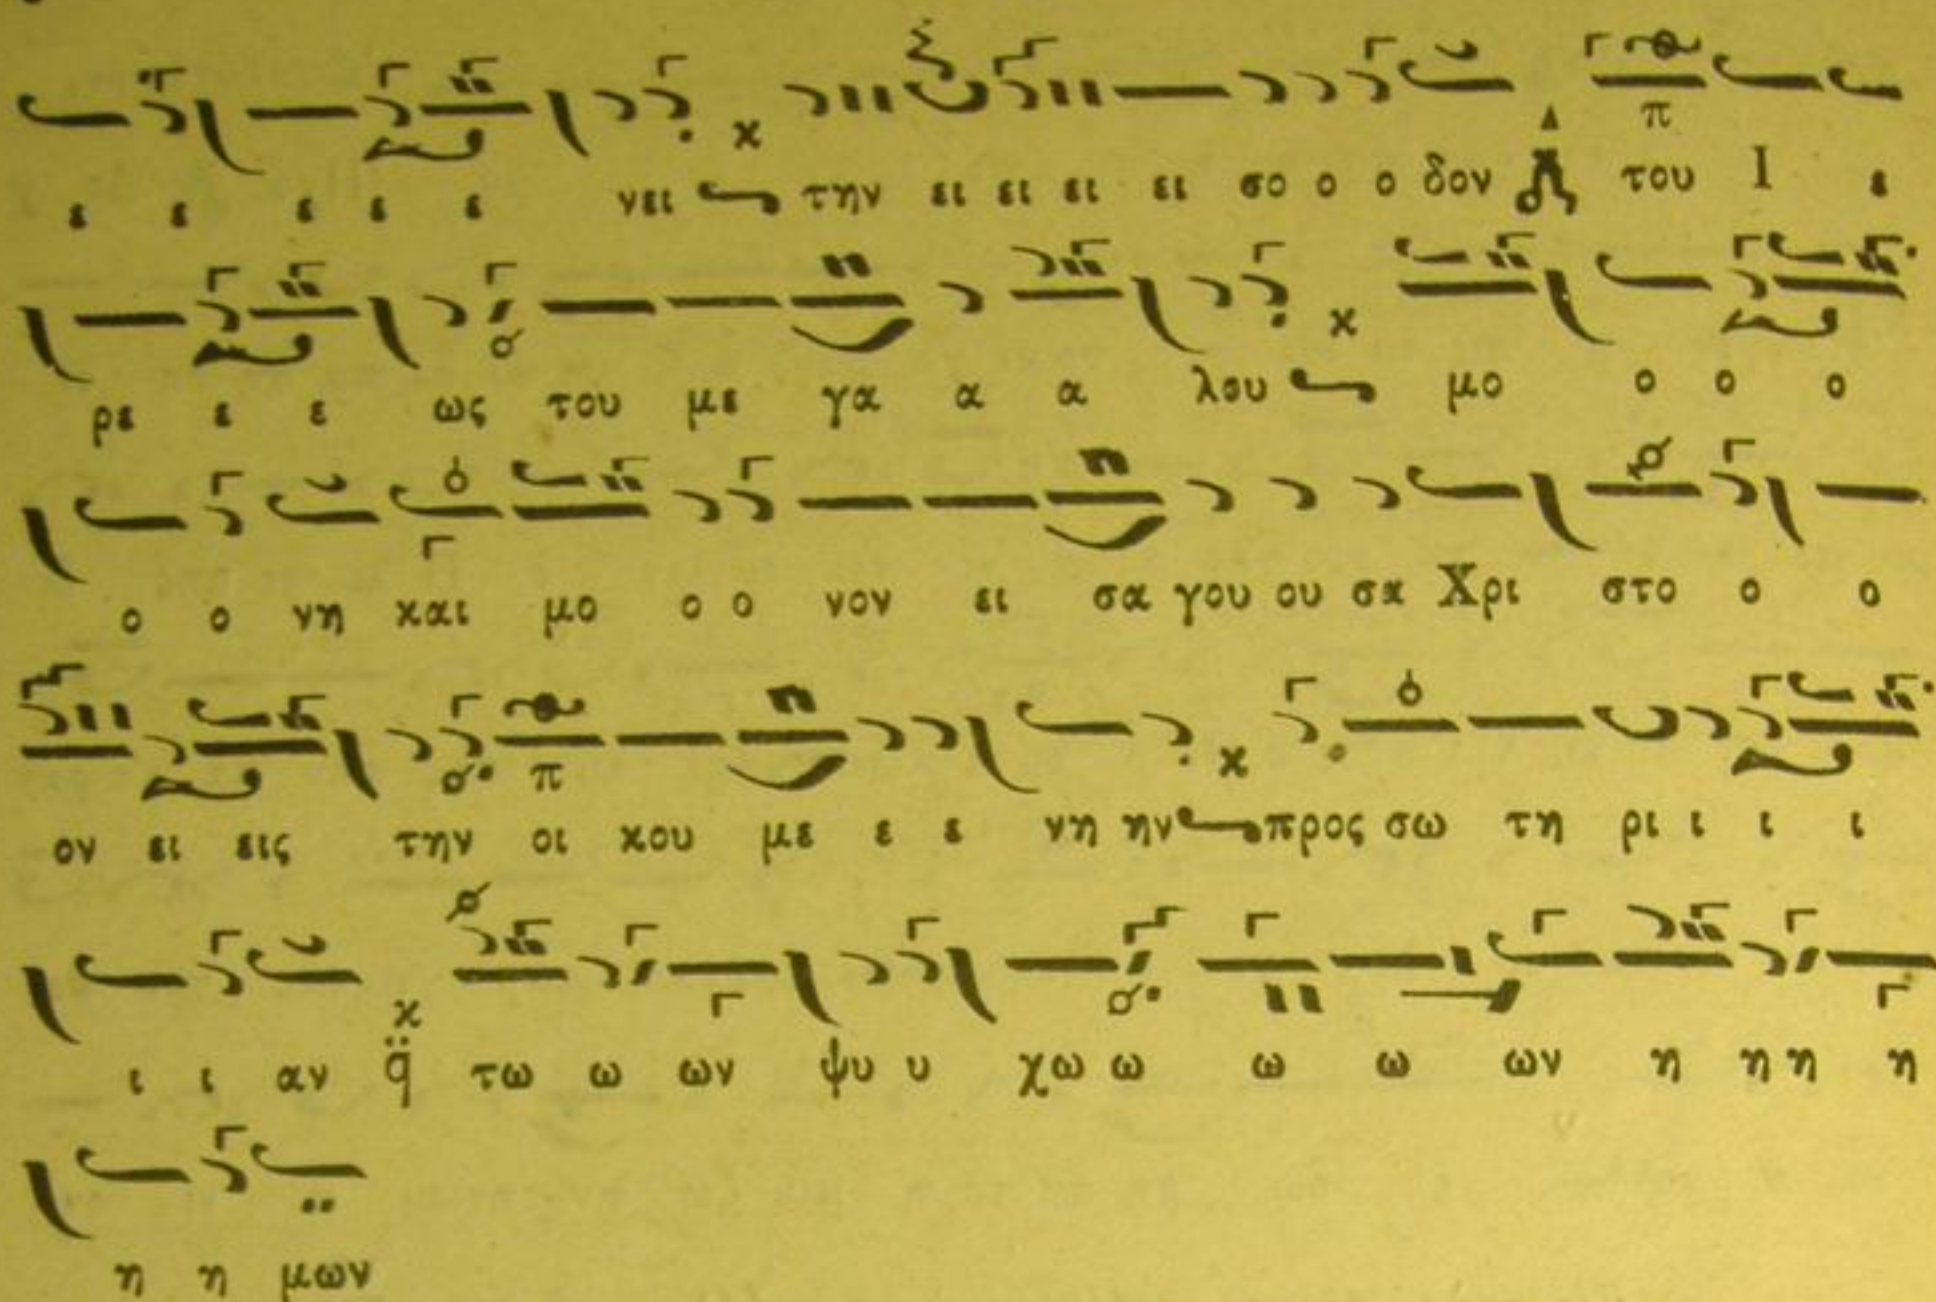 ε ε ε ε ε νει την ει ει ει ει σο ο ο δον του Ι ε
ρε ε ε ως του με γα α α λου μο ο ο ο
ο ο νη και μο ο ο νον ει σα γου ου σα Χρι στο ο ο
ον ει εις την οι κου με ε ε νη ην προς σω τη ρι ι ι ι
ι ι αν τω ω ων ψυ υ χω ω ω ω ων η η η η
η η μων